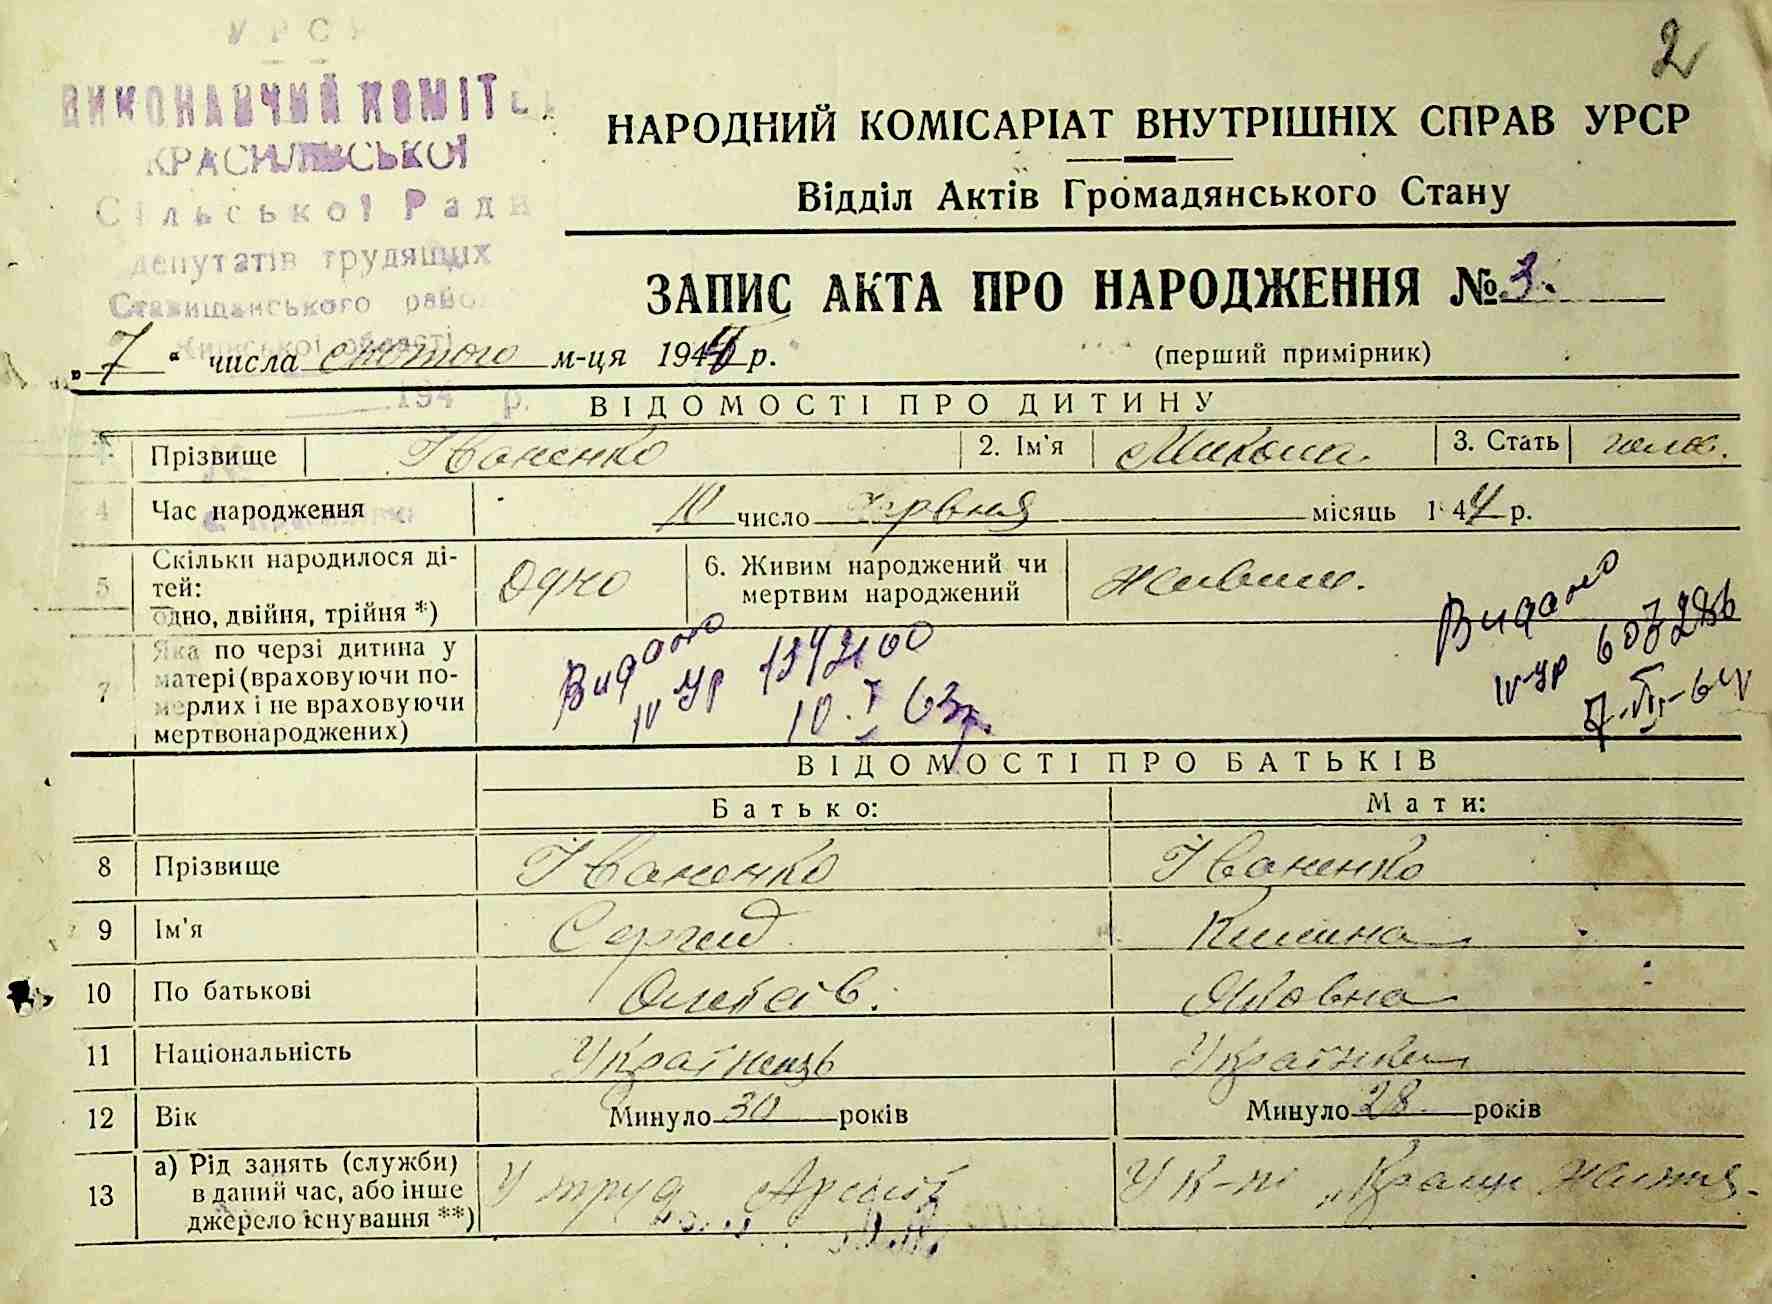 2
УРСР
ВИКОНАВЧИЙ КОМІТЕТ
КРАСИЛІВСЬКОЇ
Сільської Ради
депутатів трудящих
Ставищанського району
Київської області
194 р.
НАРОДНИЙ КОМІСАРІАТ ВНУТРІШНІХ СПРАВ УРСР
Відділ Актів Громадянського Стану
ЗАПИС АКТА ПРО НАРОДЖЕННЯ № 3.
„7“ числа лютого м-ця 1944 р. (перший примірник)
ВІДОМОСТІ ПРО ДИТИНУ
Прізвище Іваненко 2. Ім'я Микола. 3. Стать чолов.
4 Час народження 10 число червня місяць 1944 р.
5 Скільки народилося ді-
тей:
одно, двійня, трійня *) Одно 6. Живим народжений чи
мертвим народжений Живим.
7 Яка по черзі дитина у
матері (враховуючи по-
мерлих і не враховуючи
мертвонароджених)
Видано
IV УР 1342100
10.I 63р.
Видано
IV-УР 607286
ВІДОМОСТІ ПРО БАТЬКІВ
Батько: Мати:
8 Прізвище Іваненко Іваненко
9 Ім'я Сергій
10 По батькові Олексіїв. Яковна
11 Національність Українець Українка
12 Вік Минуло 30 років Минуло 28 років
13 а) Рід занять (служби)
в даний час, або інше
джерело існування **) У труд Армії У К-пі „Краще життя.